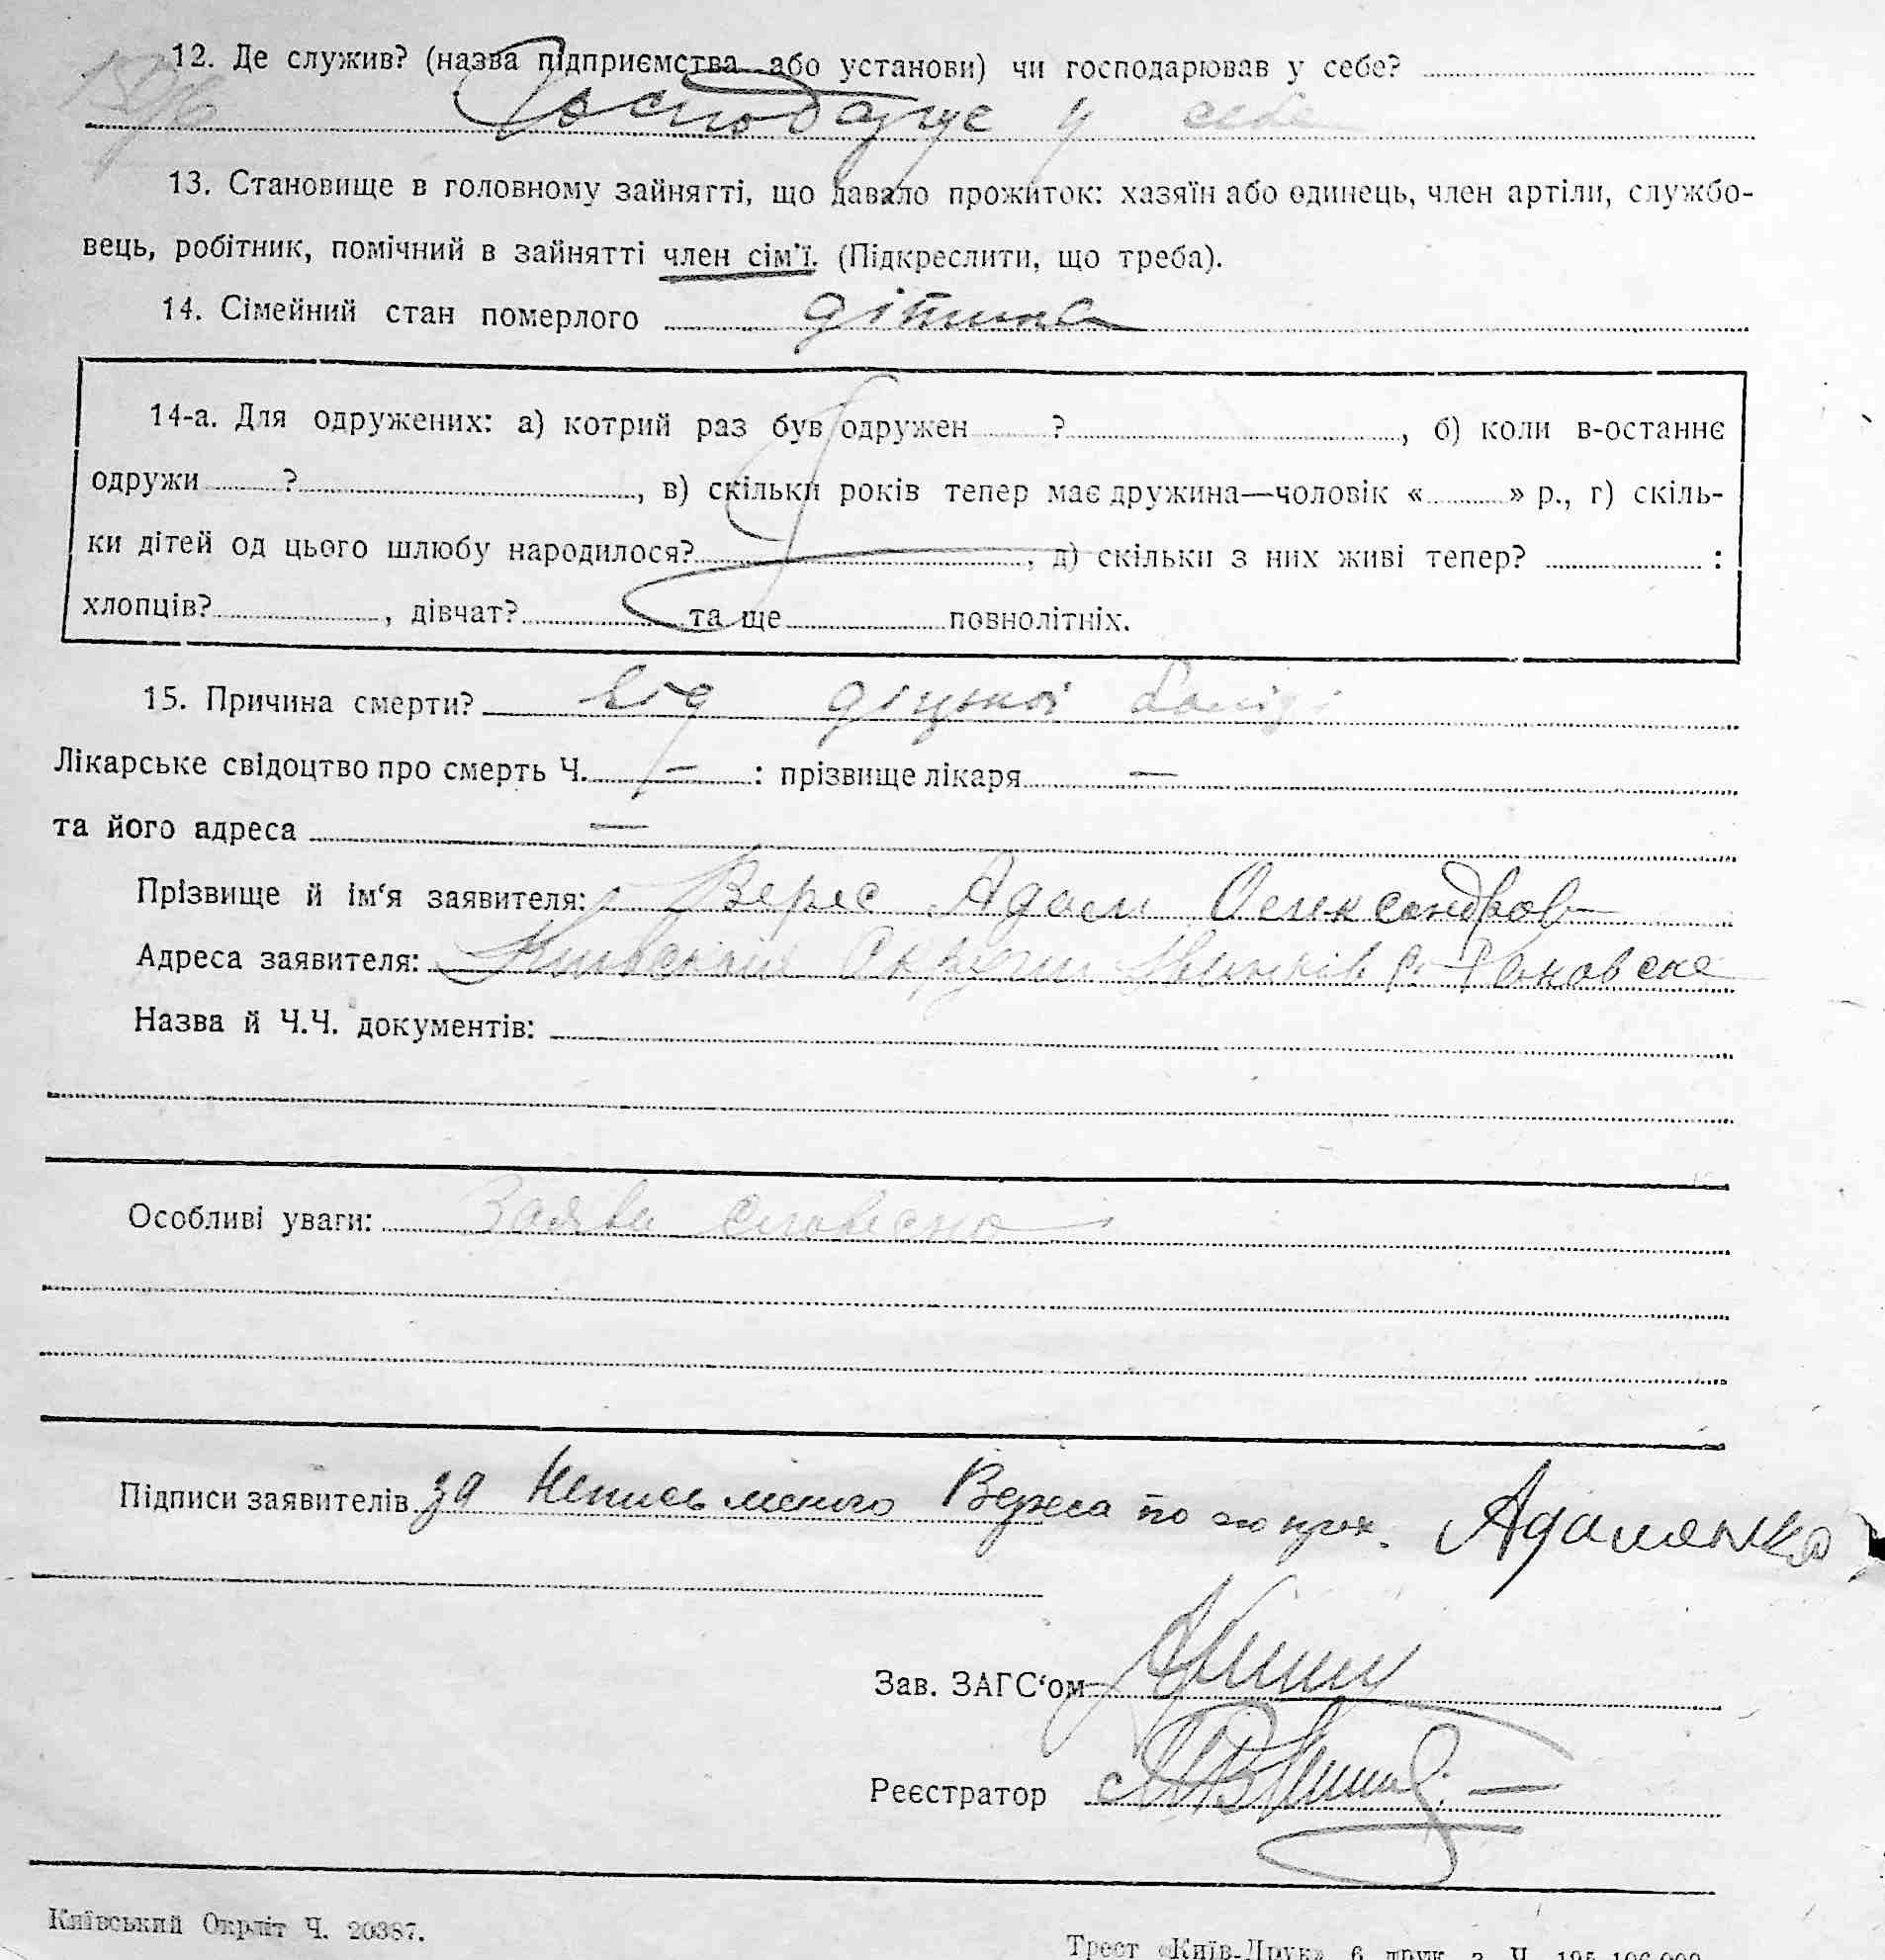 12. Де служив? (назва підприємства або установи) чи господарював у себе?
Господарує у себе
13. Становище в головному зайнятті, що давало прожиток: хазяїн або одинець, член артіли, службо-
вець, робітник, помічний в зайнятті член сім'ї. (Підкреслити, що треба).
14. Сімейний стан померлого дітина
14-а. Для одружених: а) котрий раз був одружен ? , б) коли в-останнє
одружи ? , в) скільки років тепер має дружина—чоловік « » р., г) скіль-
ки дітей од цього шлюбу народилося? , д) скільки з них живі тепер? :
хлопців? , дівчат? та ще повнолітніх.
15. Причина смерти? від дітської
Лікарське свідоцтво про смерть Ч. — : прізвище лікаря —
та його адреса —
Прізвище й ім'я заявителя: Верес Адам Олександров
Адреса заявителя: Київської Округи
Назва й Ч.Ч. документів:
Особливі уваги: Заява словесна
Підписи заявителів за Неписьменого Вереса по его прох. Адаменко
Зав. ЗАГС'ом
Реєстратор
Київський Окрліт Ч. 20387.
Трест «Київ-Друк» 6 друк. з. Ч.